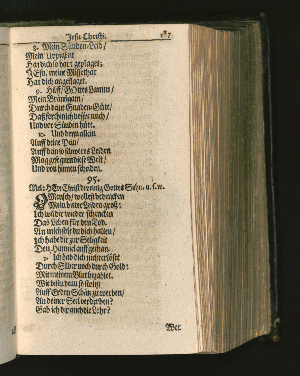 Jesu Christi. 187
8. Mein Sünden-Leid/
Mein Uppigkeit
Hat dich so hart geplaget:
JEsu, meine Missethat
Hat dich angeklaget.
9. Hilff/ GOttes Lamm/
Mein Bräutigam/
Durch deine Gnaden-Güte/
Daß ich
Und vor Sünden hüte.
10. Und dem allein
Auff deine Pein/
Auff dein so schweres Leiden
Mag gern die Welt/
Und
95.
Mel: HErr Christ der einig Gottes Sohn. u. s. w.
O Mensch/ wollest bedencken
Mein bitter Leiden groß:
Ich wil dir wieder schencken
Das Leben für den Tod.
An mich solst du dich halten/
Ich habe dir zur Seligkeit
Den Himmel auffgethan.
2. Ich hab dich nicht erlöset
Durch Silber noch durch Gold:
Mit meinem Blut bezahlet.
Wie bistu denn so stoltz
Auff Erden Schätz zu werben/
An deiner Seel verderben?
Gab ich dir nicht die Lehr?
Wer